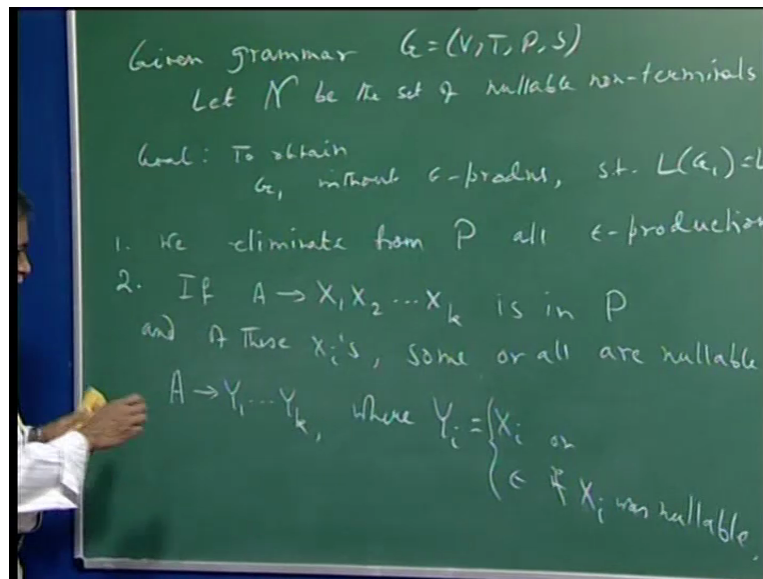 Given grammar G = (V, T, P, S)
Let N be the set of nullable non-terminals
Goal: To obtain
G₁ without ϵ-produns, s.t. L(G₁) = L
1. We eliminate from P all ϵ-production
2. If A → X₁ X₂ ... Xₖ is in P
and of these Xᵢ's, some or all are nullable
A → Y₁ ... Yₖ, where Yᵢ = { Xᵢ or
ϵ if Xᵢ was nullable.